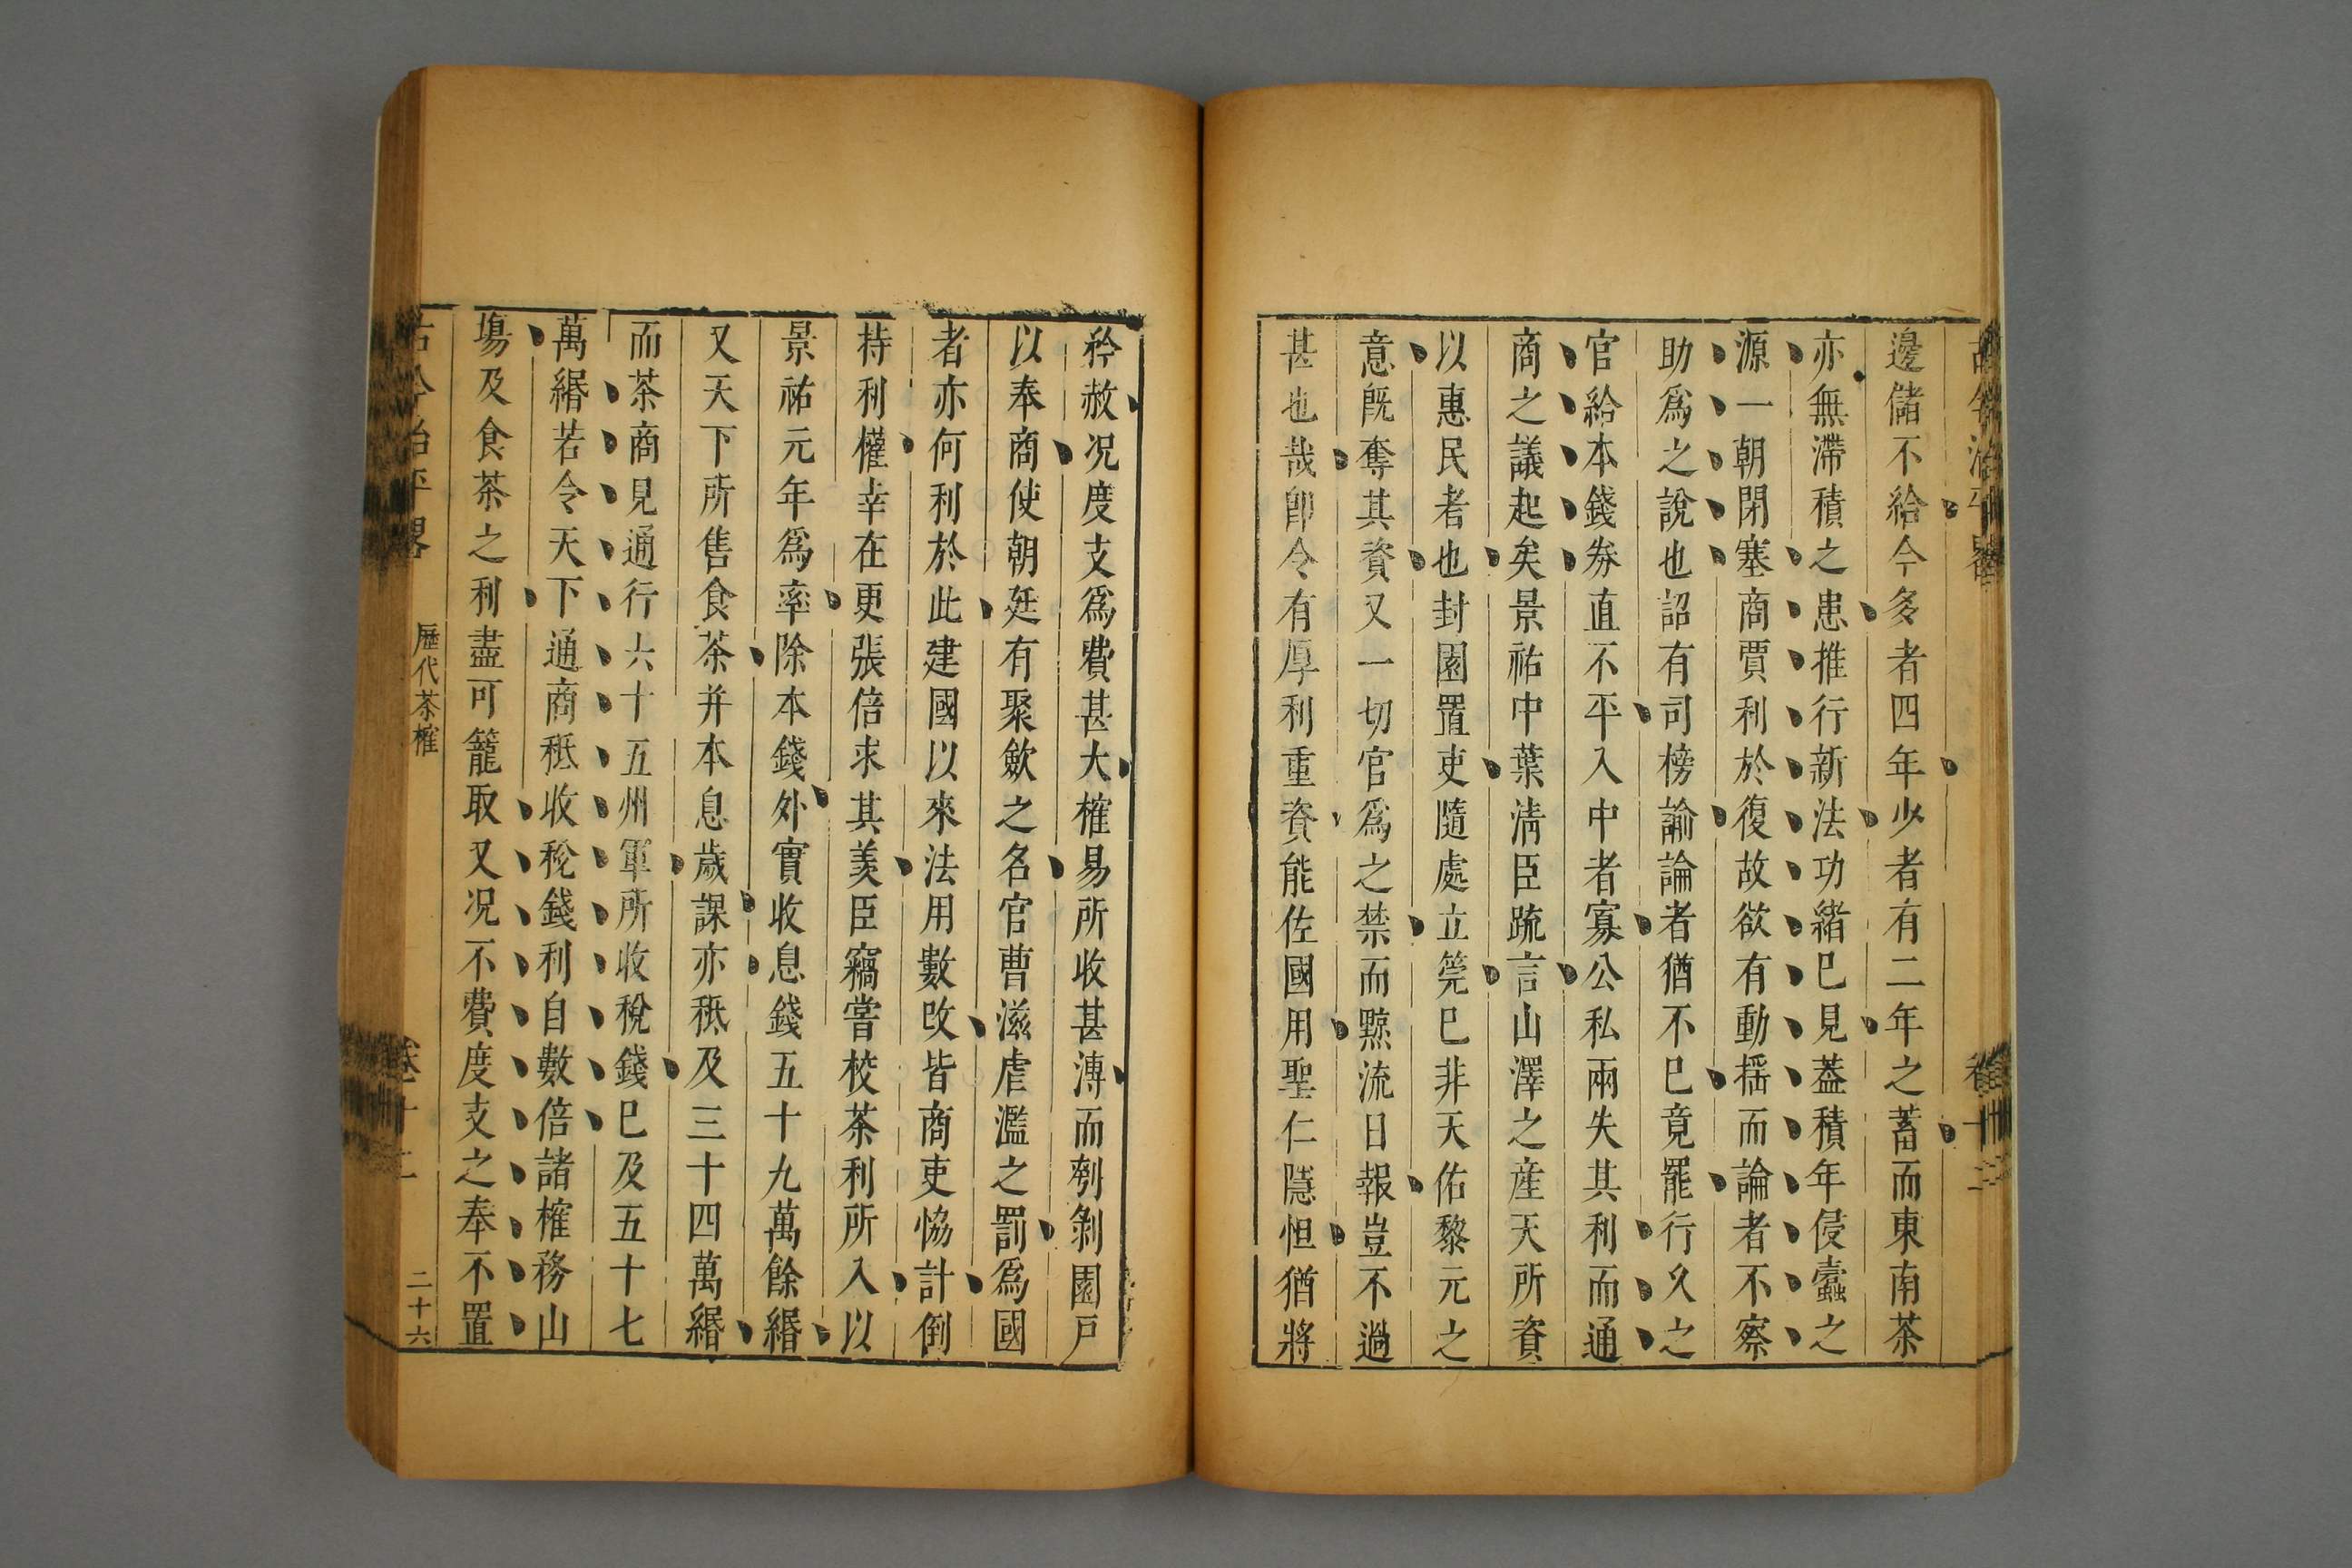 邊儲不給今多者四年少者有二年之蓄而東南茶
亦無滯積之患推行新法功緒已見葢積年侵蠹之
源一朝閉塞商賈利於復故欲有動揺而論者不察
助爲之說也詔有司榜諭論者猶不已竟罷行久之
官給本錢券直不平入中者寡公私兩失其利而通
商之議起矣景祐中葉淸臣䟽言山澤之産天所資
以惠民者也封園置吏隨處立筦已非天佑黎元之
意旣奪其資又一切官爲之禁而黥流日報豈不過
甚也哉卽令有厚利重資能佐國用聖仁隱怛猶將
矜赦况度支爲費甚大榷易所收甚溥而刳剝園戸
以奉商使朝廷有聚斂之名官曹滋虐濫之罰爲國
者亦何利於此建國以來法用數改皆商吏恊計倒
持利權幸在更張倍求其羙臣竊嘗校茶利所入以
景祐元年爲率除本錢外實收息錢五十九萬餘緡
又天下所售食茶幷本息歲課亦秪及三十四萬緡
而茶商見通行六十五州軍所收稅錢已及五十七
萬緡若令天下通商秪收稅錢利自數倍諸榷務山
場及食茶之利盡可籠取又况不費度支之奉不置
古今治平畧 歷代茶榷 卷十二 二十六